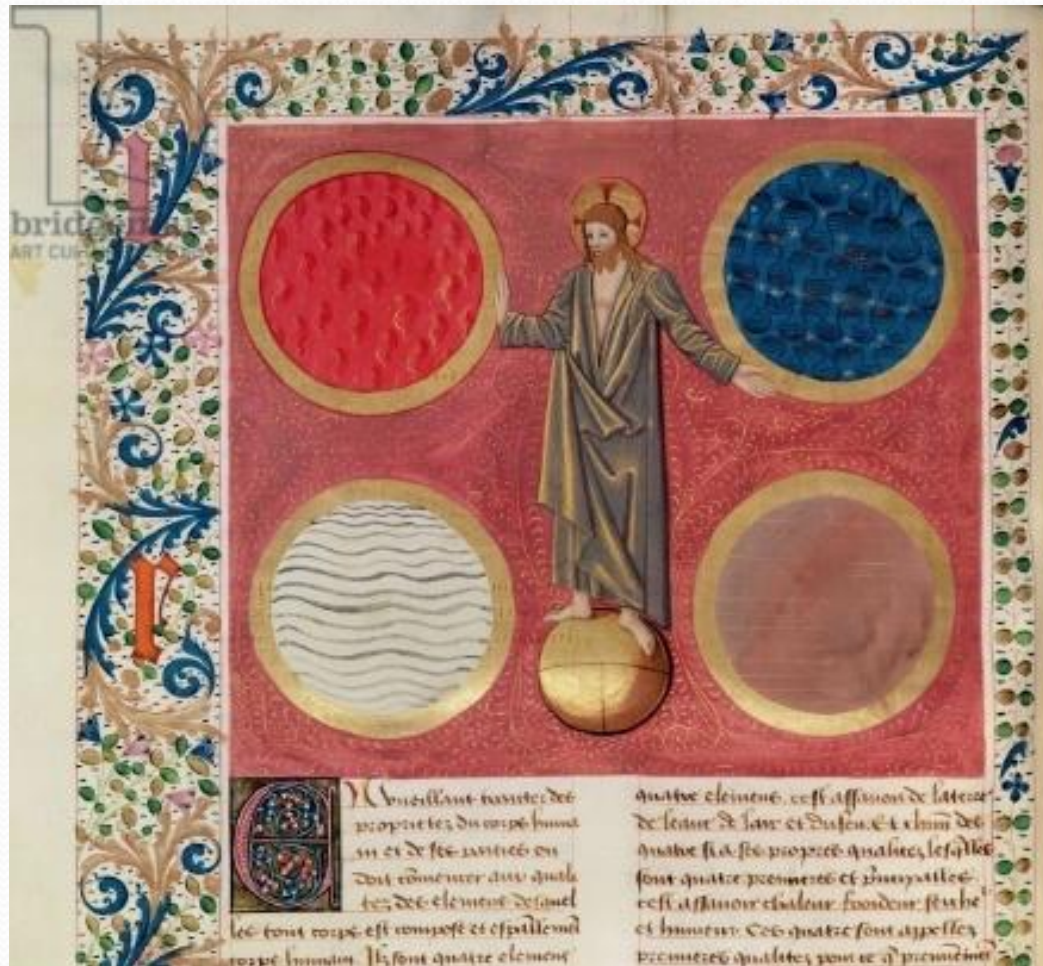 bridgem
ART CU
l
r
EN voueillant traiter des
proprietez du corps huma
in et de ses parties on
doit cōmencer aux quali
tez des elemens desquel
les tout corps est compose et
corps humain. Ilz sont quatre elemens
quatre elemens, cest assavoir de la terre
de leaue de lair et du feu. Et chūn des
quatre si a ses propres qualitez lesqlles
sont quatre premieres et
cest assavoir chaleur froideur seiche
et humeur Ces quatre sont appellez
premieres qualitez pour ce q̄